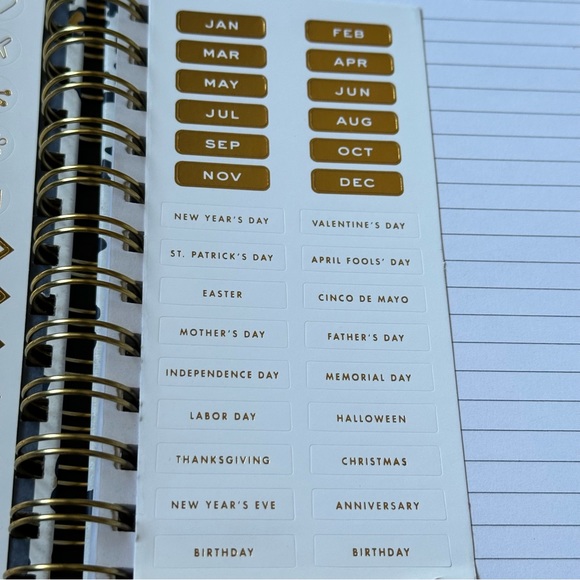 JAN FEB
MAR APR
MAY JUN
JUL AUG
SEP OCT
NOV DEC
NEW YEAR'S DAY VALENTINE'S DAY
ST. PATRICK'S DAY APRIL FOOLS' DAY
EASTER CINCO DE MAYO
MOTHER'S DAY FATHER'S DAY
INDEPENDENCE DAY MEMORIAL DAY
LABOR DAY HALLOWEEN
THANKSGIVING CHRISTMAS
NEW YEAR'S EVE ANNIVERSARY
BIRTHDAY BIRTHDAY